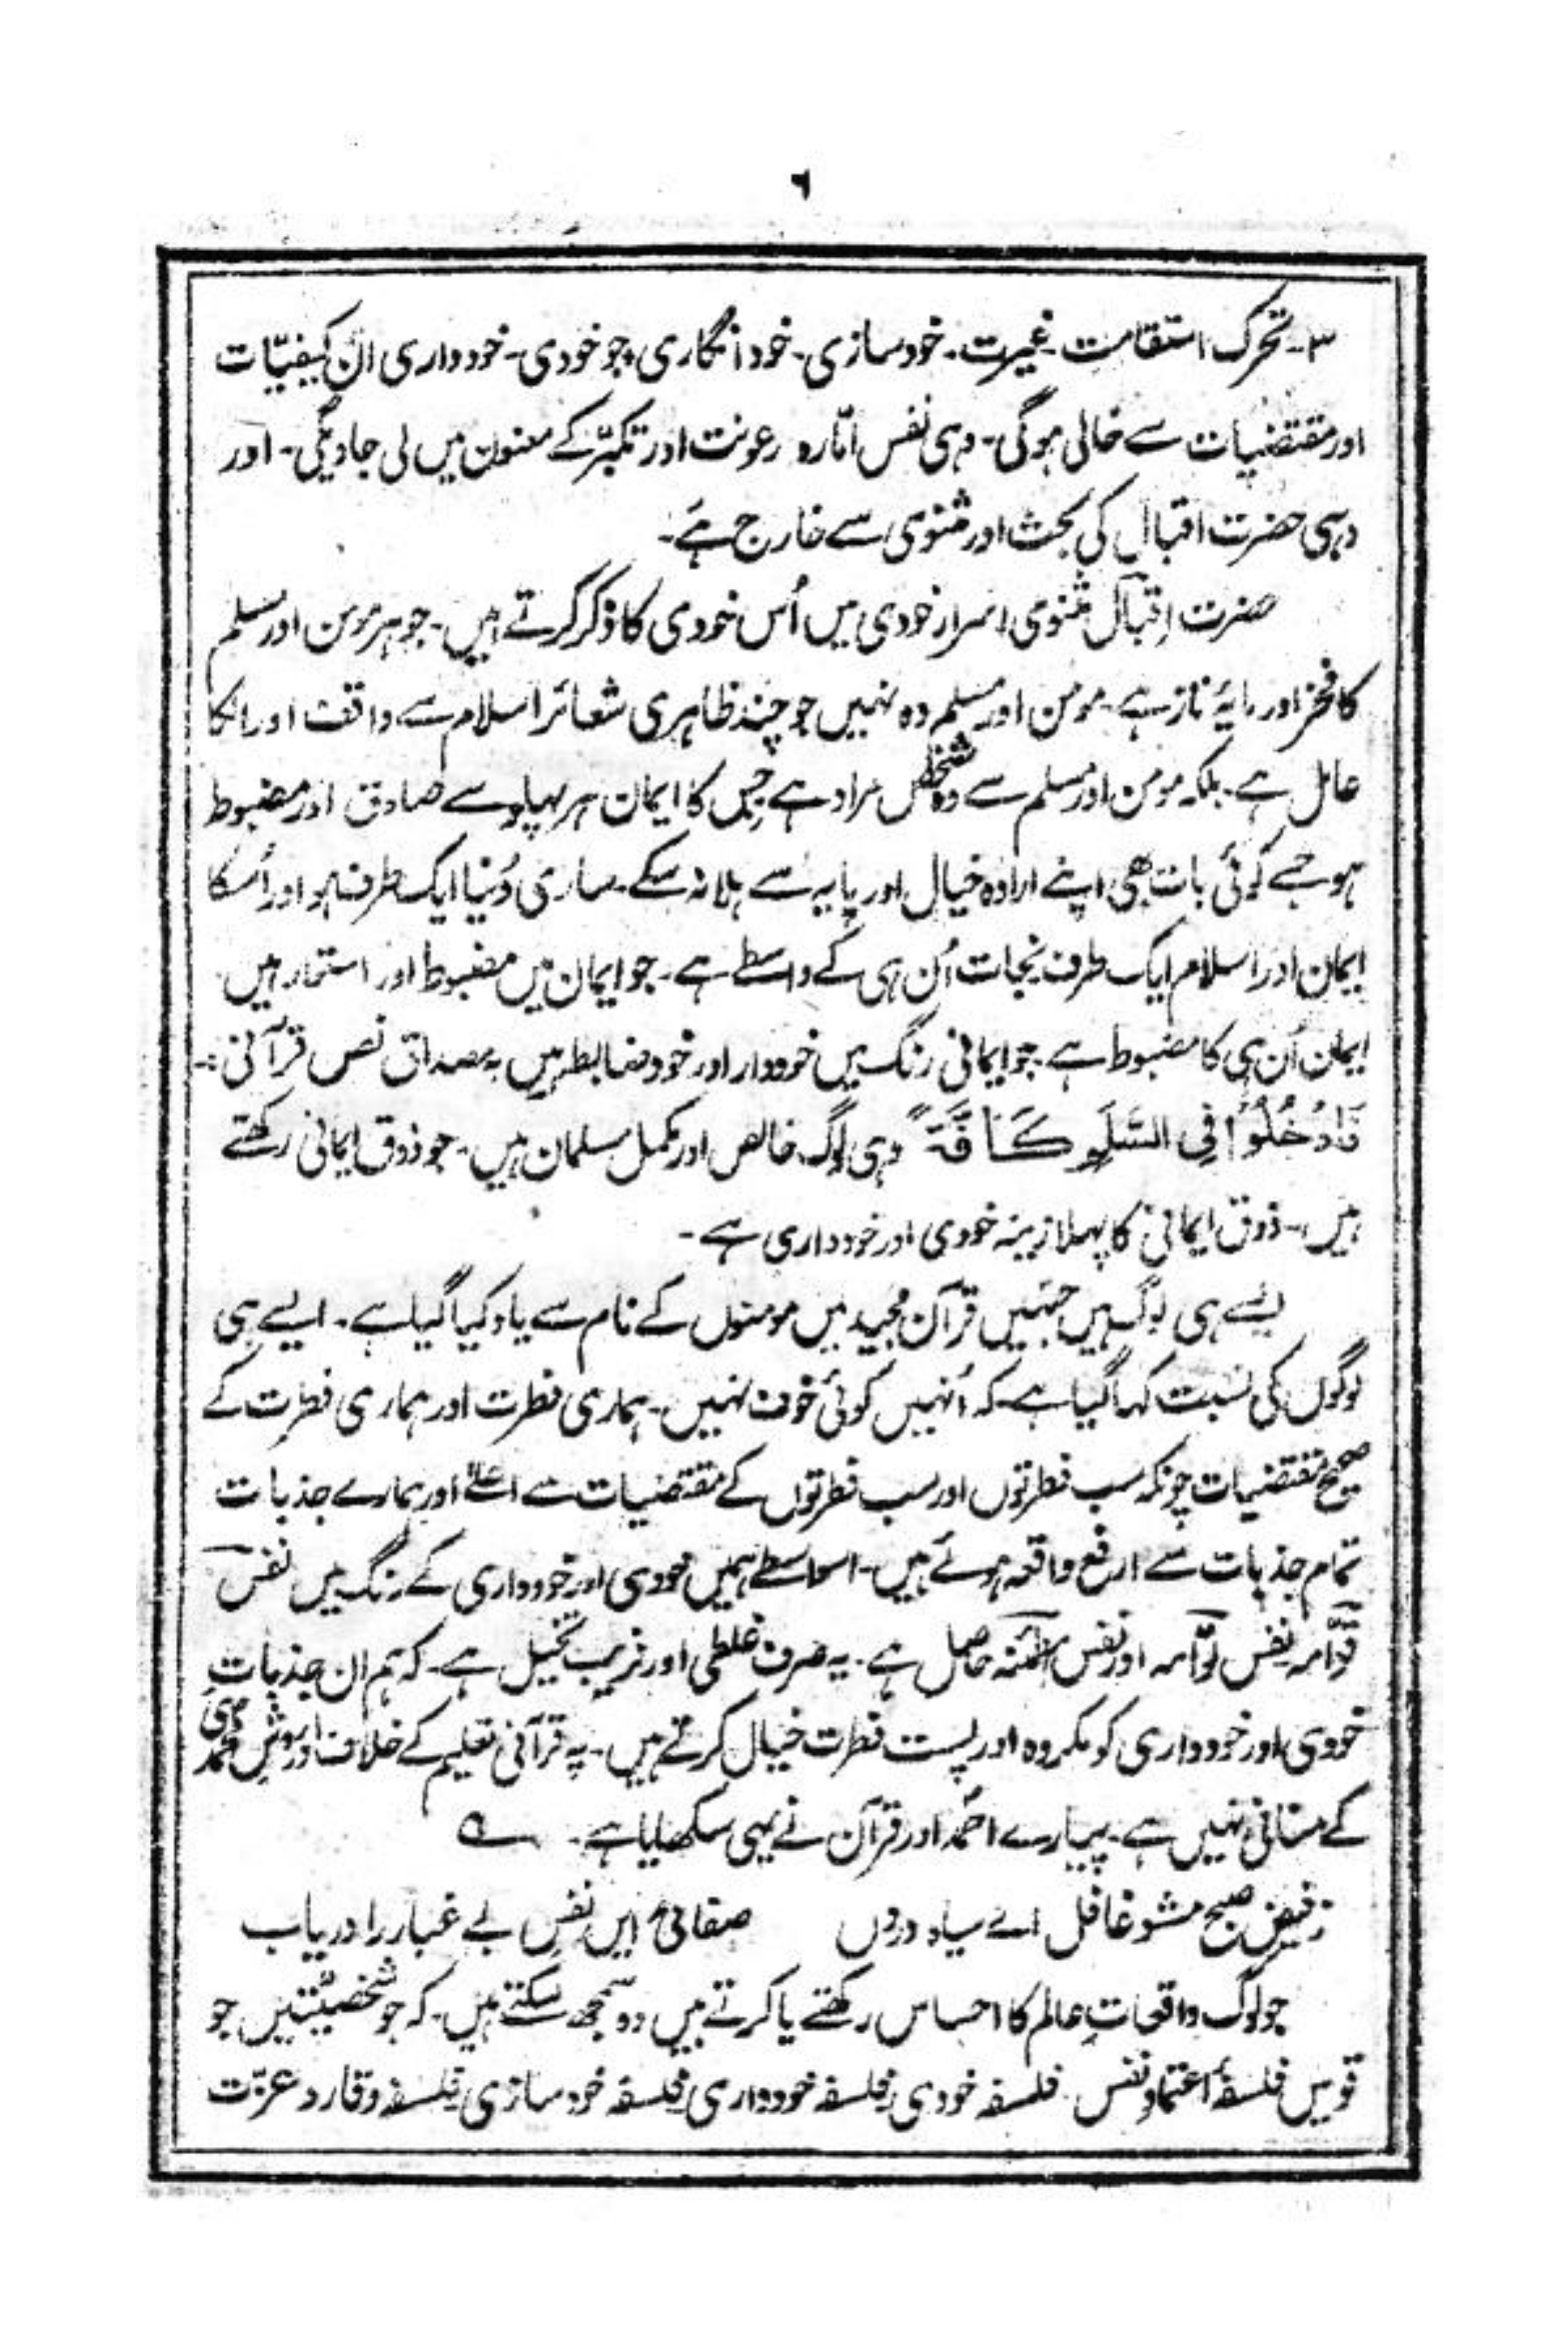 ۶
۳- تحرک استقامت غیرت۔ خود سازی۔ خود انگاری، جو خودی۔ خودداری ان کیفیّات
اور مقتضیات سے خالی ہوگی۔ وہی نفس امّارہ رعونت اور تکبّر کے معنوں میں لی جاویگی۔ اور
وہی حضرت اقبال کی بحث اور مثنوی سے خارج ہے۔
حضرت اقبال مثنوی اسرار خودی میں اُس خودی کا ذکر کرتے ہیں۔ جو ہر مومن اور مسلم
کا فخر اور مایۂ ناز ہے۔ مومن اور مسلم وہ نہیں جو چند ظاہری شعائر اسلام سے واقف اور انکا
عامل ہے۔ بلکہ مومن اور مسلم سے وہ شخص مراد ہے جس کا ایمان ہر پہلو سے صادق اور مضبوط
ہو جسے کوئی بات بھی اپنے ارادہ خیال اور پایہ سے ہلا نہ سکے۔ ساری دُنیا ایک طرف ہو اور اُسکا
ایمان اور اسلام ایک طرف نجات اُن ہی کے واسطے ہے۔ جو ایمان میں مضبوط اور استمار ہیں
ایمان اُن ہی کا مضبوط ہے۔ جو ایمانی رنگ میں خوددار اور خود ضابطہ ہیں بہ مصداق نص قرآنی:۔
فَادْخُلُوْا فِی السِّلْمِ کَافَّۃً وہی لوگ خالص اور مکمل مسلمان ہیں۔ جو ذوق ایمانی رکھتے
ہیں،۔ ذوق ایمانی کا پہلا زینہ خودی اور خودداری ہے۔
ایسے ہی لوگ ہیں جنہیں قرآن مجید میں مومنوں کے نام سے یاد کیا گیا ہے۔ ایسے ہی
لوگوں کی نسبت کہا گیا ہے۔ کہ اُنہیں کوئی خوف نہیں۔ ہماری فطرت اور ہماری فطرت کے
صحیح مقتضیات چونکہ سب فطرتوں اور سب فطرتوں کے مقتضیات سے اعلےٰ اور ہمارے جذبات
تمام جذبات سے ارفع واقعہ ہوئے ہیں۔ اسواسطے ہمیں خودی اور خودداری کے رنگ میں نفس
قوّامہ نفس لوّامہ اور نفس مطمئنہ حاصل ہے۔ یہ صرف غلطی اور فریب تخیل ہے۔ کہ ہم ان جذبات
خودی اور خودداری کو مکروہ اور پست فطرت خیال کرتے ہیں۔ یہ قرآنی تعلیم کے خلاف اور روش محمدی
کے منافی نہیں ہے۔ پیارے احمدؐ اور قرآن نے یہی سکھلایا ہے۔ ؎
زفیض صبح مشو غافل اے سیاہ دروں صفائیٔ ایں نفس بے غبار را دریاب
جو لوگ واقعاتِ عالم کا احساس رکھتے یا کرتے ہیں وہ سمجھ سکتے ہیں۔ کہ جو شخصیّتیں جو
قومیں فلسفۂ اعتماد نفس۔ فلسفہ خودی۔ فلسفہ خودداری۔ فلسفہ خود سازی۔ فلسفہ وقار و عزّت